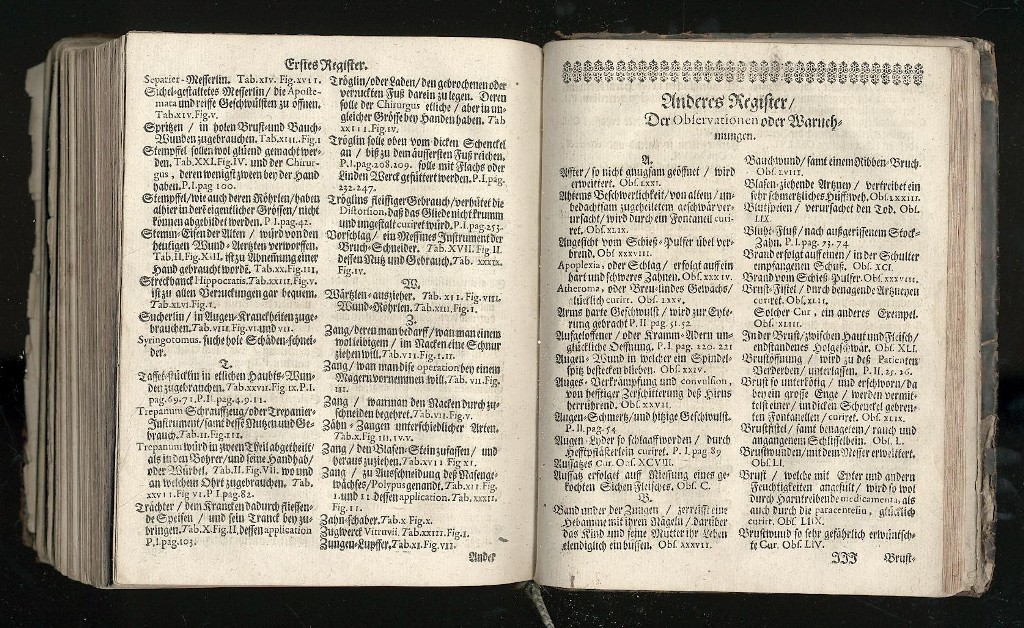 Erstes Register.
Separier-Messerlin. Tab.xiv. Fig.xvii.
Sichel-gestaltetes Messerlin / die Aposte-
mata und reiffe Geschwülsten zu öfnen.
Tab.xiv.Fig.v.
Spritzen / in holen Brust-und Bauch-
Wunden zugebrauchen. Tab.xiii.Fig.i
Stempffel sollen wol glüend gemacht wer-
den. Tab.XXI.Fig.IV. und der Chirur-
gus, deren wenigst zween bey der Hand
haben. P.I.pag 100.
Stempffel / wie auch deren Röhrlen / haben
allhier in der eigentlicher Grössen / nicht
können abgebildet werden. P.I.pag.42.
Stemm-Eisen der Alten / würd von den
heutigen Wund-Aertzten verworffen.
Tab.II.Fig.XiII. ist zu Abnemung einer
Hand gebraucht wordē. Tab.xx.Fig.III.
Streckbanck Hippocratis. Tab.xxiii.Fig.v.
ist zu allen Verruckungen gar bequem.
Tab.xLvi.Fig.i.
Sucherlin / in Augen-Kranckheiten zuge-
brauchen. Tab.viii.Fig.vii. und
Syringotomus. suche holt Schäden-schnei-
der.
T.
Taffet-stücklin in etlichen Haubts-Wun-
den zugebrauchen. Tab.xxvii.Fig ix.P.I.
pag.69.71.P.II. pag.4.9.11.
Trepanum Schrauffzeug / oder Trepanier-
Instrument / samt desse Nutzen und Ge-
brauch. Tab.II.Fig.III.
Trepanum würd in zween Theil abgetheilt /
als in den Bohrer / und seine Handhab /
oder Würbel. Tab.II.Fig.Vii. wo und
an welchem Ohrt zugebrauchen. Tab.
xxvii.Fig vi.P.I.pag.82.
Trächter / dem Krancken dadurch fliessen-
de Speisen / und sein Tranck bey zu-
bringen. Tab.X.Fig.II. dessen application
P.I.pag.103.
Tröglin / oder Laden / den gebrochenen oder
verruckten Fuß darein zu legen. Deren
solle der Chirurgus etliche / aber in un-
gleicher Grösse bey Handen haben. Tab
xxiii.Fig.iv.
Tröglin solle oben vom dicken Schenckel
an / biß zu dem äussersten Fuß reichen.
P.I.pag.208.209. solle mit Flachs oder
Linden Werck gefüttert werden. P.I.pag.
232.247.
Tröglins fleissiger Gebrauch / verhütet die
Distorsion, daß das Gliede nicht krumm
und ungestalt curiret würd. P.I.pag.253.
Vorschlag / ein Messines Instrument der
Bruch-Schneider. Tab.XVII.Fig II.
dessen Nutz und Gebrauch. Tab. xxxix.
Fig.iv.
W.
Wärtzlen-auszieher. Tab.xii.Fig.viii.
Wund-Röhrlen. Tab.xiii.Fig.i.
Z.
Zang / deren man bedarff / wan man einem
wolleibigem / im Nacken eine Schnur
ziehen will. Tab.vii.Fig.i.ii.
Zang / wan man disse operation bey einem
Magern vornemmen will. Tab.vii.Fig.
iii.
Zang / wan man den Nacken durch zu-
schneiden begehret. Tab.vii.Fig.v.
Zahn-Zangen unterschiedlicher Arten.
Tab.x.Fig iii.iv.v.
Zang / den Blasen-Stein zufassen / und
heraus zuziehen. Tab.xvii Fig xi.
Zang / zu Ausschneidung deß Nasenge-
wächses / Polypus genandt. Tab.xii.Fig.
i.und ii dessen application. Tab.xxxii.
Fig.ii.
Zahn-schaber. Tab.x Fig.x.
Zugwerck Vitruvii. Tab.xxiii.Fig.i.
Zungen-Lupffer. Tab.xi.Fig.vii.
Ander
Anderes Register /
Der Observationen oder Warneh-
mungen.
A.
Affter / so nicht anugsam geöffnet / wird
erweittert. Obs.Lxxi.
Ahtems Beschwerlichkeit / von altem / un-
bedachtsam zugeheiletem geschwär ver-
ursacht / wird durch ein Fontanell curi-
ret. Obs.xLix.
Angesicht vom Schieß-Pulfer übel ver-
brend. Obs xxxviii.
Apoplexia, oder Schlag / erfolgt auff ein
hart und schweres Zahnen. Obs.xxxiv.
Atheroma, oder Breulindes Gewächs /
glücklich curirt. Obs. Lxxv.
Arms harte Geschwulst / wird zur Eyte-
rung gebracht P.II. pag. 51.52
Aufgeloffener / oder Kramm-Adern un-
glückliche Oeffnung. P.I. pag. 220. 221
Augen-Wund in welcher ein Spindel-
spitz bestecken blieben. Obs. xxiv.
Auges-Verkrampfung und convulsion,
von hefftiger Zerschitterung deß Hirns
herrührend. Obs.xxvii.
Augen-Schmertz / und hitzige Geschwulst.
P.II.pag.54
Augen-Lyder so schlaaff worden / durch
Hefftpflästerlein curiret. P.I.pag.89
Aussatzes Cur. Obs.XCVIII.
Aussatz erfolget auff Niessung eines ge-
kochten Sichen Fleisches. Obs. C.
B.
Band under der Zungen / zerreisst eine
Hebamme mit ihren Nägeln / darüber
das Kind und seine Mutter ihr Leben
elendiglich einbüssen. Obs.xxxvii.
Bauchwund / samt einem Ribben-Bruch.
Obs.LVIII.
Blasen-ziehende Artzney / vertreibet ein
sehr schmertzliches Hüfftweh. Obs.Lxxxiii.
Blutspeien / verursachet den Tod. Obs.
LIX.
Bluht-Fluß / nach außgerissenem Stock-
Zahn. P.I.pag.73.74
Brand erfolgt auff einen / in der Schulter
empfangenen Schuß. Obs.XCI.
Brand vom Schieß-Pulfer. Obs.xxxviii.
Brust-Fistel / durch benagende Artzneyen
curiret. Obs.xLii.
Solcher Cur, ein anderes Exempel.
Obs.xLiii.
In der Brust / zwischen Haut und Fleisch /
entstandenes Holgeschwär. Obs. XLI.
Brustöffnung / wird zu deß Patienten
Verderben / unterlassen. P.II.25.26.
Brust so unterkötig / und erschworn / da
bey ein grosse Enge / werden vermit-
telst einer / im dicken Schenckel gebren-
ten Fontanellen / curiret. Obs.xLix.
Brustfistel / samt benageten / rauch und
angangenem Schlisselbein. Obs. L.
Brustwunden / mit dem Messer erweitert.
Obs.LI.
Brust / welche mit Eyter und andern
Feuchtigkeiten angefült / wird so wol
durch Harntreibende medicamenta, als
auch durch die paracentesin, glücklich
curirt. Obs. LIIX.
Brustwund so sehr gefährlich erwünsch-
te Cur. Obs. LIV.
III Brust-